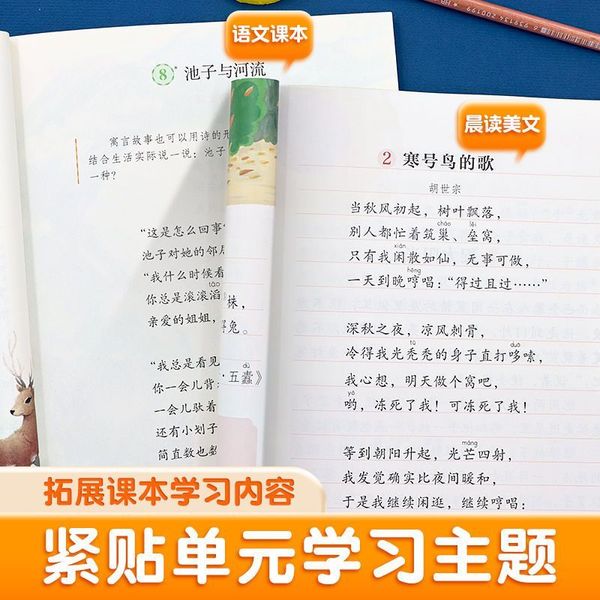 语文课本
8 池子与河流
寓言故事也可以用诗的形
结合生活实际说一说：池子
一种？
"这是怎么回事
池子对她的邻居
"我什么时候看
你总是滚滚滔
亲爱的姐姐，
"我总是看见
你一会儿背
一会儿驮着
还有小划子
简直数也
株，
得兔。
dù
·五蠹》
晨读美文
2 寒号鸟的歌
胡世宗
当秋风初起，树叶飘落，
cháo lěi
别人都忙着筑巢、垒窝，
xián
只有我闲散如仙，无事可做，
hēng
一天到晚哼唱："得过且过……"
深秋之夜，凉风刺骨，
tū duō
冷得我光秃秃的身子直打哆嗦，
我心想，明天做个窝吧，
yō
哟，冻死了我！可冻死了我！
等到朝阳升起，光芒四射，
máng
我发觉确实比夜间暖和，
于是我继续闲逛，继续哼唱：
拓展课本学习内容
紧贴单元学习主题